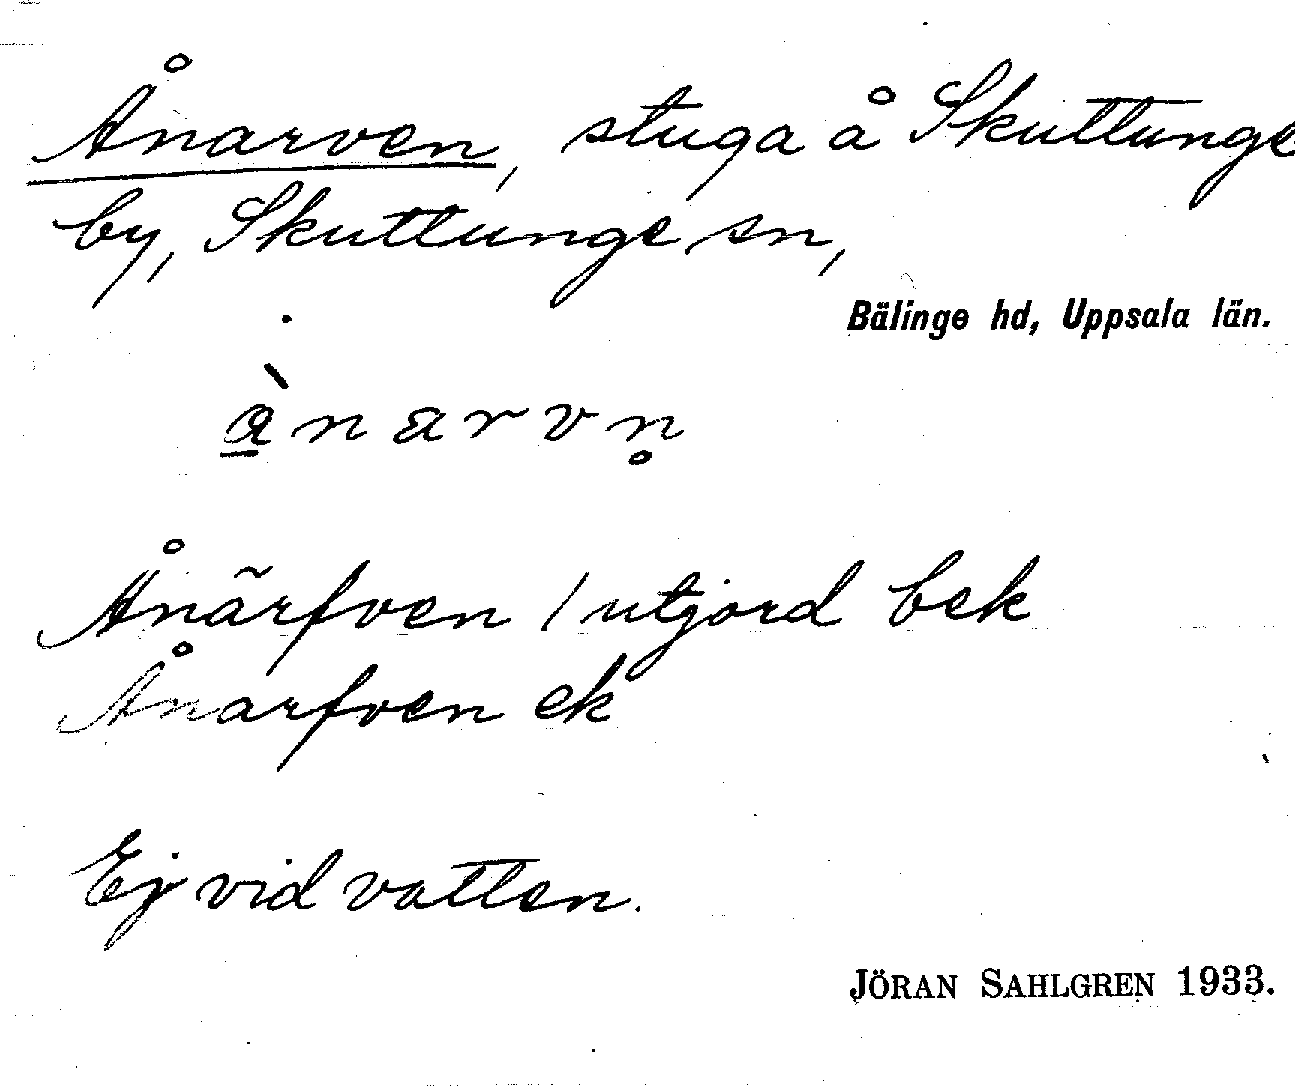 Ånarven, stuga å Skuttunge
by, Skuttunge sn,
Bälinge hd, Uppsala län.
å̱̀narvn̥
Ånãrfven / utjord bek
Ånarfven ek
Ej vid vatten.
JÖRAN SAHLGREN 1933.